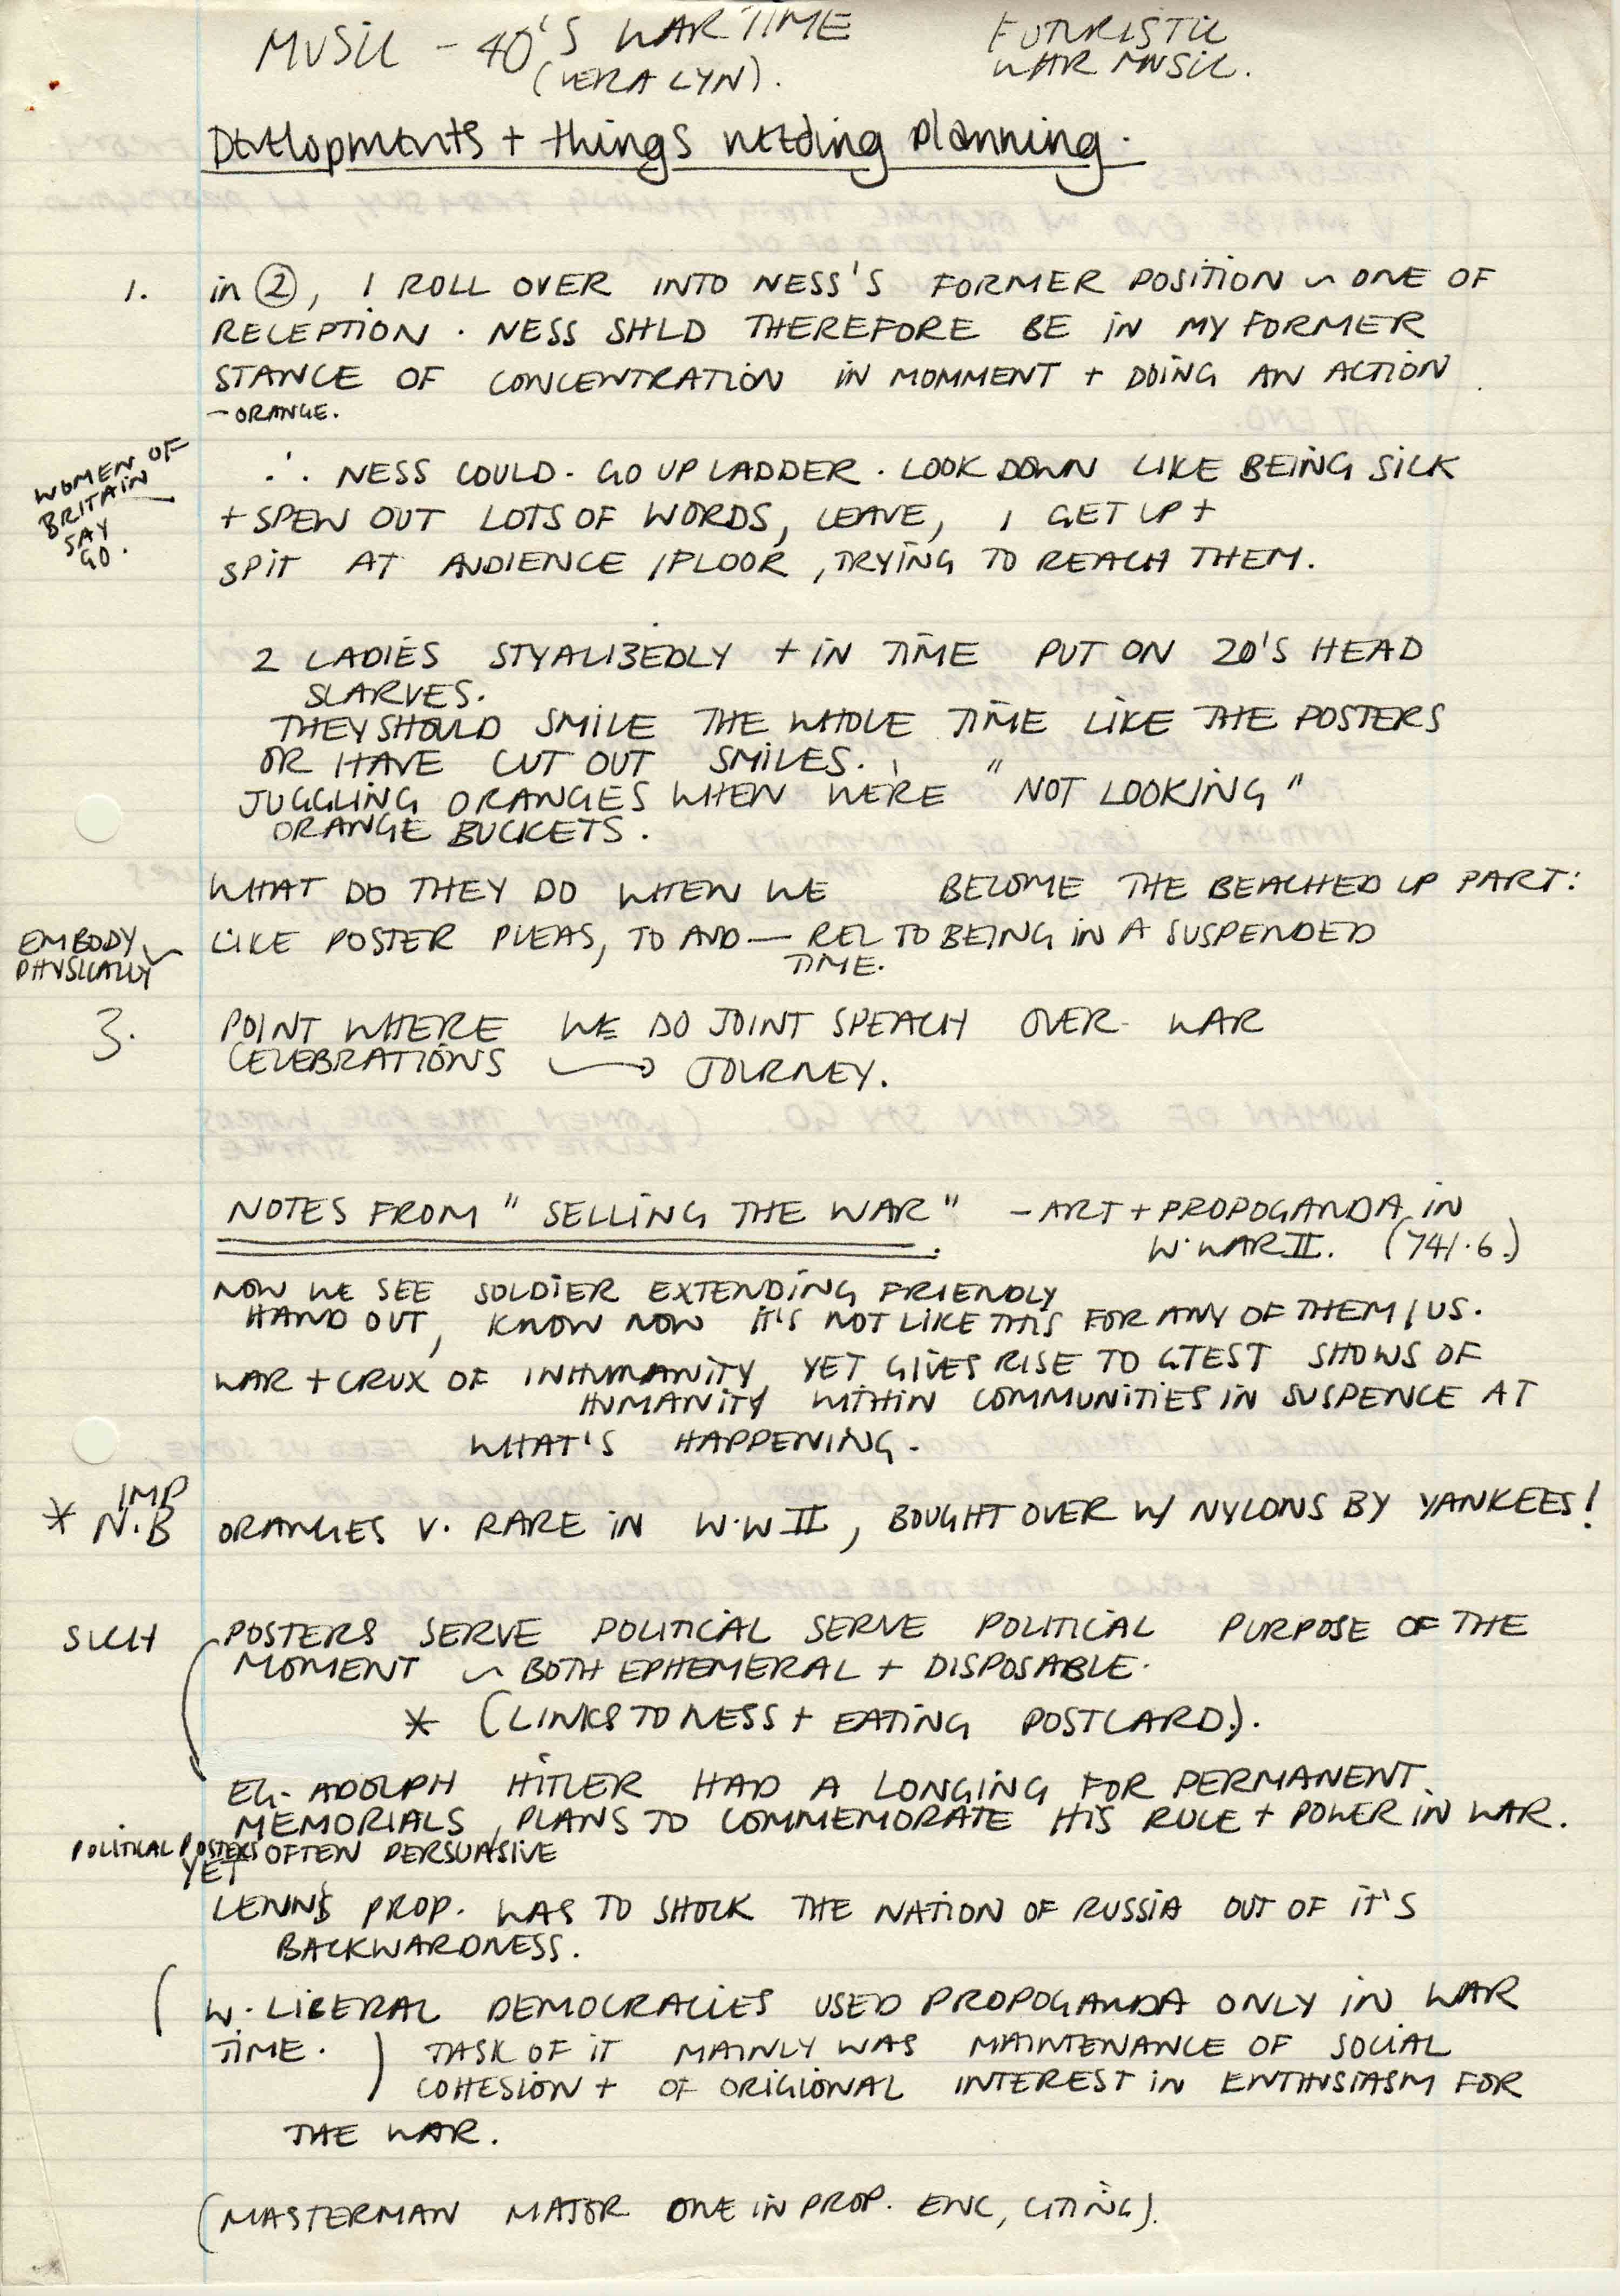 MUSIC - 40'S WAR TIME
(VERA LYN).
FUTURISTIC
WAR MUSIC.
Developments + things needing planning.
1. in ②, I ROLL OVER INTO NESS'S FORMER POSITION ~ ONE OF
RECEPTION. NESS SHLD THEREFORE BE IN MY FORMER
STANCE OF CONCENTRATION IN MOMMENT + DOING AN ACTION
- ORANGE.
WOMEN OF
BRITAIN
SAY
GO.
∴ NESS COULD. GO UP LADDER. LOOK DOWN LIKE BEING SICK
+ SPEW OUT LOTS OF WORDS, LEAVE, I GET UP +
SPIT AT AUDIENCE / FLOOR, TRYING TO REACH THEM.
2 LADIES STYALISEDLY + IN TIME PUT ON 20'S HEAD
SCARVES.
THEY SHOULD SMILE THE WHOLE TIME LIKE THE POSTERS
OR HAVE CUT OUT SMILES.
JUGGLING ORANGES WHEN WE'RE "NOT LOOKING"
ORANGE BUCKETS.
WHAT DO THEY DO WHEN WE BECOME THE BEACHED UP PART:
EMBODY
PHYSICALLY
LIKE POSTER PLEAS, TO AUD — REL TO BEING IN A SUSPENDED
TIME.
3. POINT WHERE WE DO JOINT SPEACH OVER WAR
CELEBRATIONS → JOURNEY.
NOTES FROM "SELLING THE WAR" - ART + PROPOGANDA IN
W. WAR II. (741.6.)
NOW WE SEE SOLDIER EXTENDING FRIENDLY
HAND OUT, KNOW NOW IT'S NOT LIKE THIS FOR ANY OF THEM / US.
WAR + CRUX OF INHUMANITY, YET GIVES RISE TO GTEST SHOWS OF
HUMANITY WITHIN COMMUNITIES IN SUSPENCE AT
WHAT'S HAPPENING.
* IMP
N.B ORANGES V. RARE IN W.W II, BOUGHT OVER W/ NYLONS BY YANKEES!
SUCH POSTERS SERVE POLITICAL SERVE POLITICAL PURPOSE OF THE
MOMENT ~ BOTH EPHEMERAL + DISPOSABLE.
* (LINKS TO NESS + EATING POSTCARD.).
EG. ADOLPH HITLER HAD A LONGING FOR PERMANENT
MEMORIALS, PLANS TO COMMEMORATE HIS RULE + POWER IN WAR.
POLITICAL POSTERS OFTEN PERSUASIVE
YET
LENNS PROP. WAS TO SHOCK THE NATION OF RUSSIA OUT OF IT'S
BACKWARDNESS.
(W. LIBERAL DEMOCRACIES USED PROPOGANDA ONLY IN WAR
TIME.) TASK OF IT MAINLY WAS MAINTENANCE OF SOCIAL
COHESION + OF ORIGIONAL INTEREST IN ENTHUSIASM FOR
THE WAR.
(MASTERMAN MAJOR ONE IN PROP. ENC, CITING).